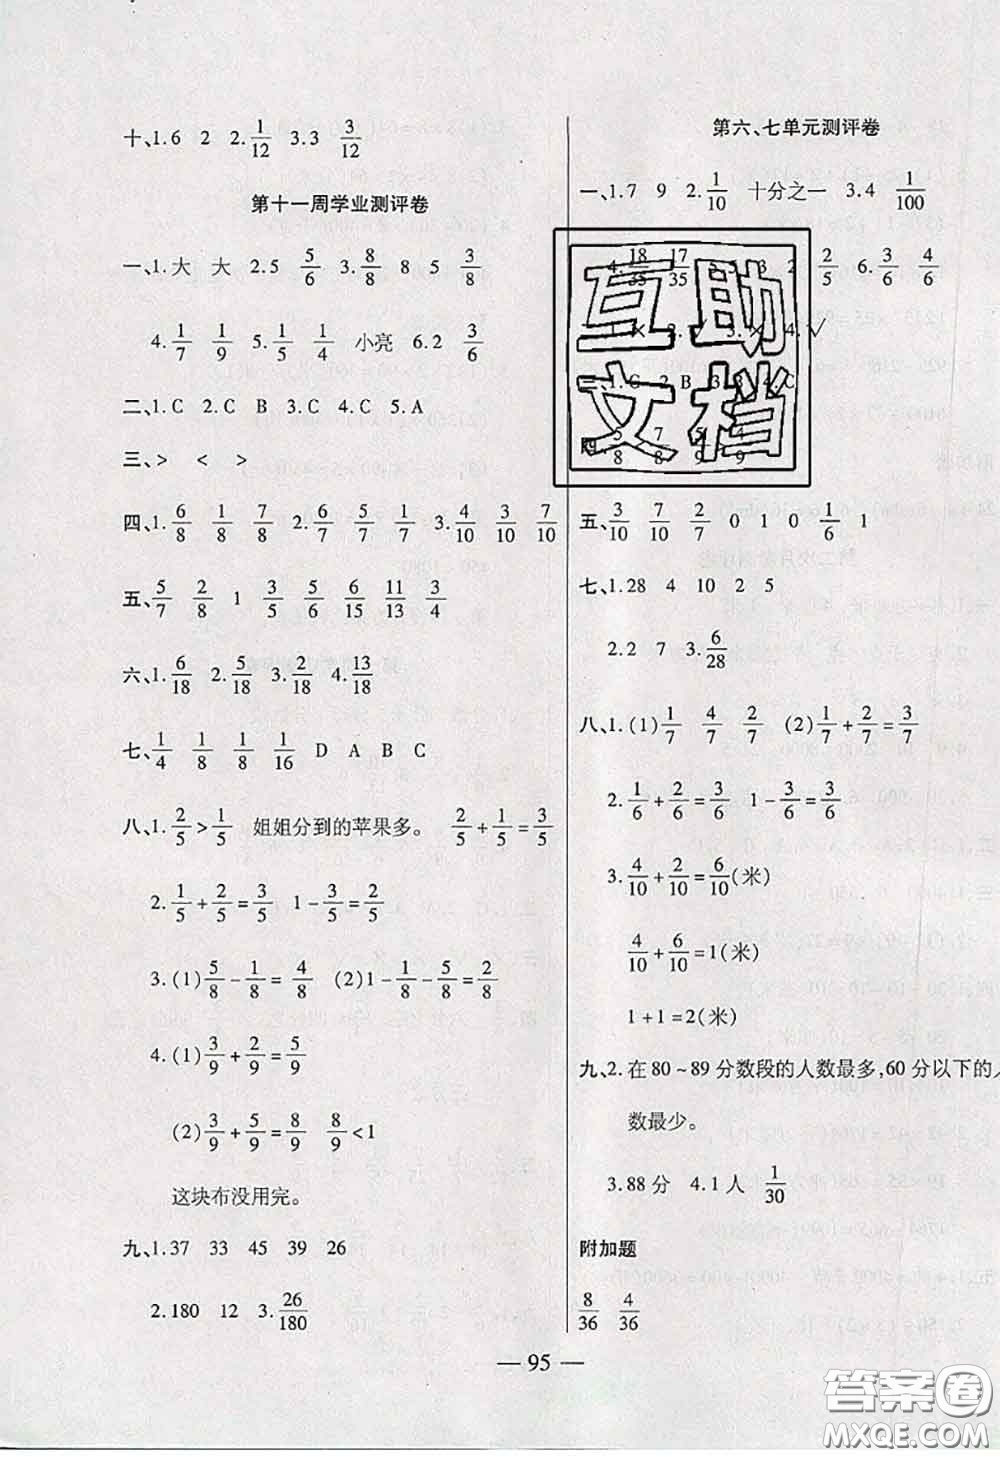 十、1.6 2 2.1/12 3.3 3/12
第十一周学业测评卷
一、1.大 大 2.5 5/6 3.8/8 8 5 3/8
4.1/7 1/9 5.1/5 1/4 小亮 6.2 3/6
二、1.C 2.C B 3.C 4.C 5.A
三、> < >
四、1.6/8 1/8 7/8 2.6/7 1/7 7/7 3.4/10 3/10 7/10
五、5/7 2/8 1 3/5 5/6 6/15 11/13 3/4
六、1.6/18 2.5/18 3.2/18 4.13/18
七、1/4 1/8 1/8 1/16 D A B C
八、1.2/5>1/5 姐姐分到的苹果多。 2/5+1/5=3/5
2.1/5+2/5=3/5 1-3/5=2/5
3.(1)5/8-1/8=4/8 (2)1-1/8-5/8=2/8
4.(1)3/9+2/9=5/9
(2)3/9+5/9=8/9 8/9<1
这块布没用完。
九、1.37 33 45 39 26
2.180 12 3.26/180
第六、七单元测评卷
一、1.7 9 2.1/10 十分之一 3.4 1/100
4.18/35 17/35 3 2 2/5 6.3/6 4/6
1.× 2. 3.× 4.√
1.C 2.B 3. 4.C
四、5/8 7/8 5/9 4/9
五、3/10 7/10 2/7 0 1 0 1/6 1
七、1.28 4 10 2 5
2.2 7 3.6/28
八、1.(1)1/7 4/7 2/7 (2)1/7+2/7=3/7
2.1/6+2/6=3/6 1-3/6=3/6
3.4/10+2/10=6/10(米)
4/10+6/10=1(米)
1+1=2(米)
九、2.在80~89分数段的人数最多,60分以下的人
数最少。
3.88分 4.1人 1/30
附加题
8/36 4/36
— 95 —
互助
文档
答案卷
MXQE.COM